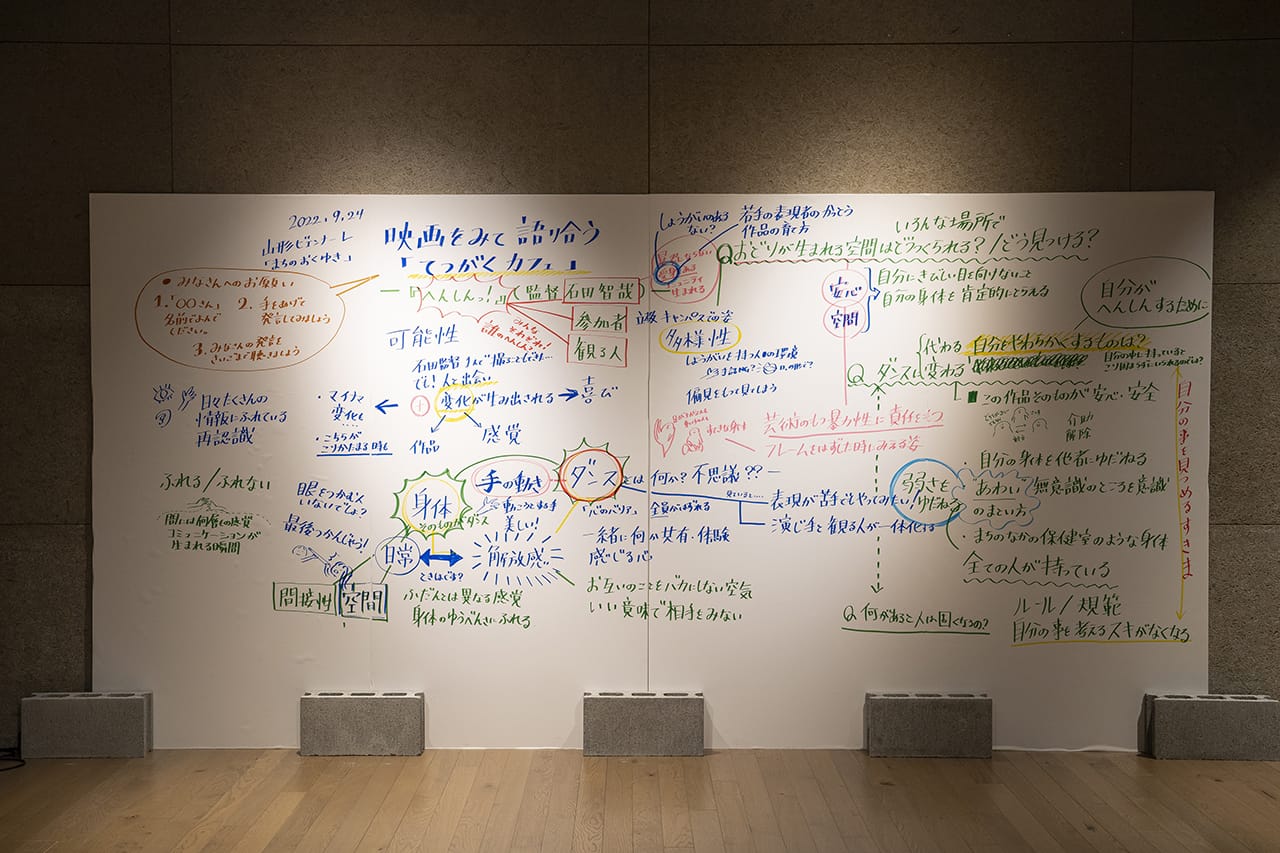 2022.9.24
山形ビエンナーレ
「まちのおくゆき」
映画をみて語り合う
「てつがくカフェ」
『へんしんっ!』
監督 石田智哉
参加者
観る人
みんな
それぞれ!
誰のへんしん?
• みなさんへのお願い
1.「〇〇さん」
名前でよんで
ください。
2. 手をあげて
発言してみましょう
3. みなさんの発言を
さいごまで聴きましょう
可能性
でも!人と出会い
変化が生み出される
喜び
作品
感覚
・マイナス
変化も
・こちらが
こりかたまる時も
日々たくさんの
情報にふれている
再認識
ふれる/ふれない
コミュニケーションが
生まれる瞬間
眼をつむんで
いないでしょ?
最後つかんじゃう!
間接性
空間
日常
身体
そのものがダンス
手の動き
美しい!
解放感
ふだんとは異なる感覚
身体のゆうべんさにふれる
ダンス
とは 何か? 不思議??
「心のバリア」
一緒に何か共有・体験
感じる心
お互いのことをバカにしない空気
いい意味で相手をみない
表現が苦手でもやってみたい
演じ手と観る人が一体化する
しょうがいのある
ない?
若手の表現者のかっとう
作品の育て方
生まれる
立教 キャンパスでの姿
多様性
しょうがいを持つ人の環境
偏見をもって見てしまう
芸術のもつ暴力性に責任をもつ
フレームをはずした時にみえる姿
いろんな場所で
Q おどりが生まれる空間はどうつくられる?/どう見つける?
安心
空間
自分にきびしい目を向けないこと
自分の身体を肯定的にとらえる
自分が
へんしんするために
Q ダンスに
代わる
変わる
自分をやわらかくするものは?
この作品そのものが安心・安全
介助
解除
自分の身体を他者にゆだねる
弱さを
ゆだねる
あわい
のまとい方
無意識のところを意識
・まちのなかの保健室のような身体
全ての人が持っている
Q 何があると人は固くなるの?
ルール/規範
自分の事を考えるスキがなくなる
自分の事を見つめるすきま